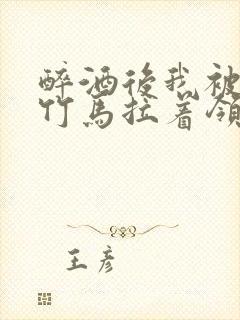 醉酒後我被
竹馬拉着領
王彥